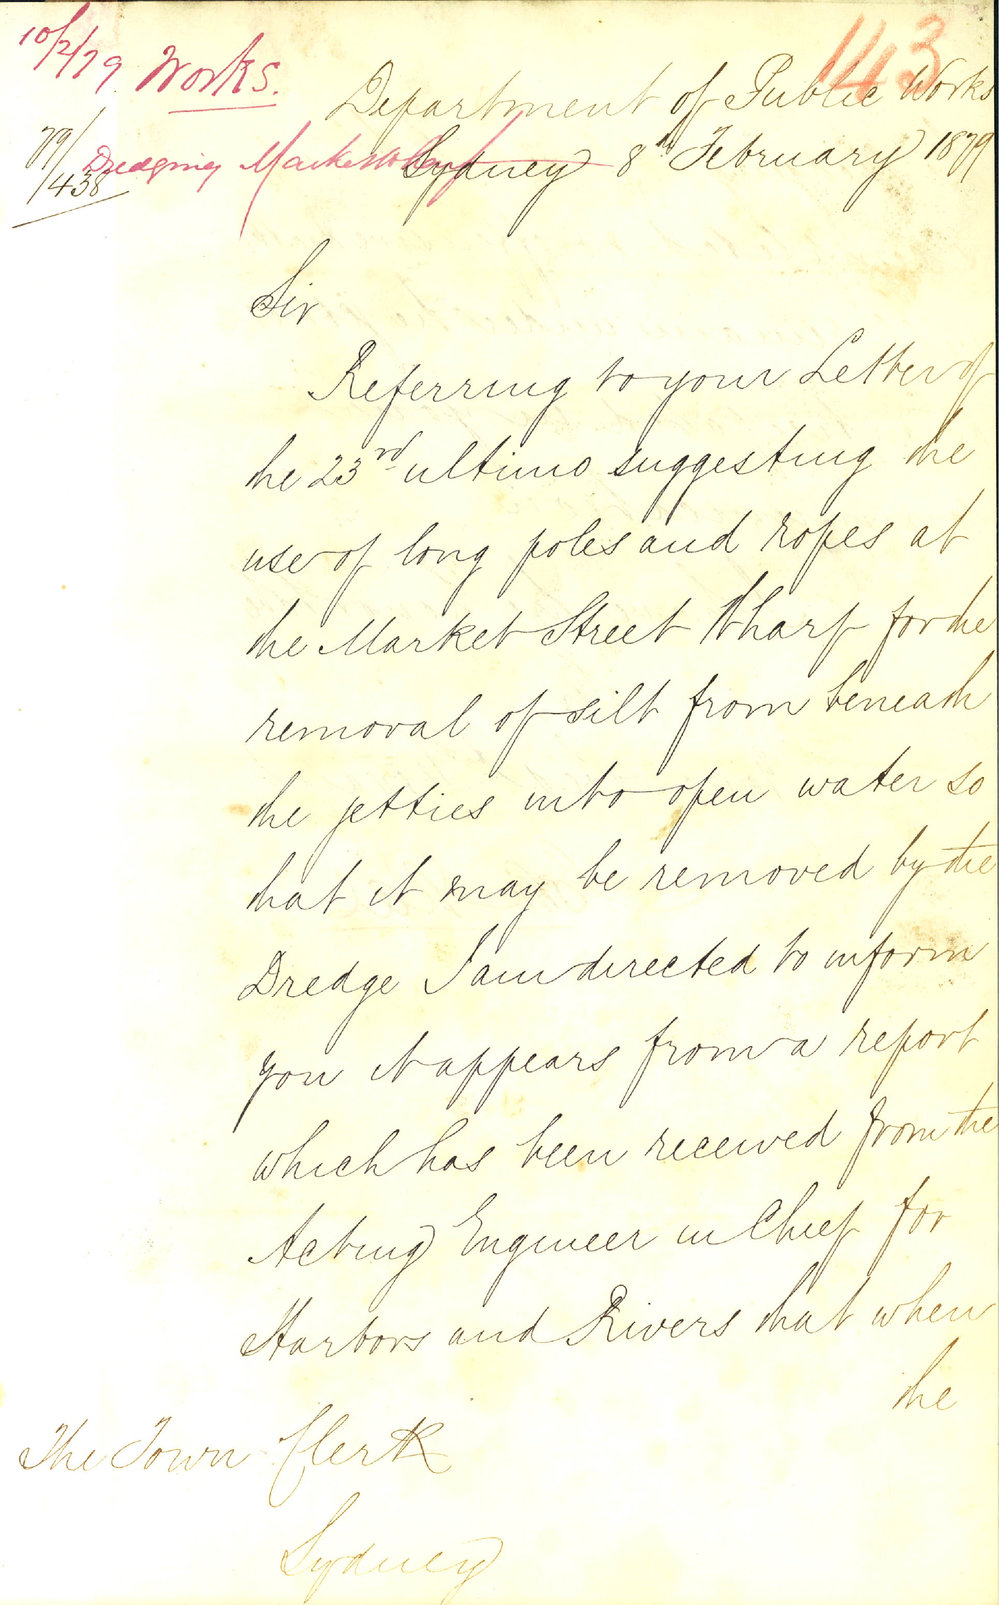 143
10/2/79 Works.
Department of Public Works
79/438
Dredging Market St Wharf
Sydney 8th February 1879
Sir
Referring to your Letter of
the 23rd ultimo suggesting the
use of long poles and ropes at
the Market Street Wharf for the
removal of silt from beneath
the jetties into open water so
that it may be removed by the
Dredge I am directed to inform
you it appears from a report
which has been received from the
Acting Engineer in Chief for
Harbors and Rivers that when
the
The Town Clerk
Sydney